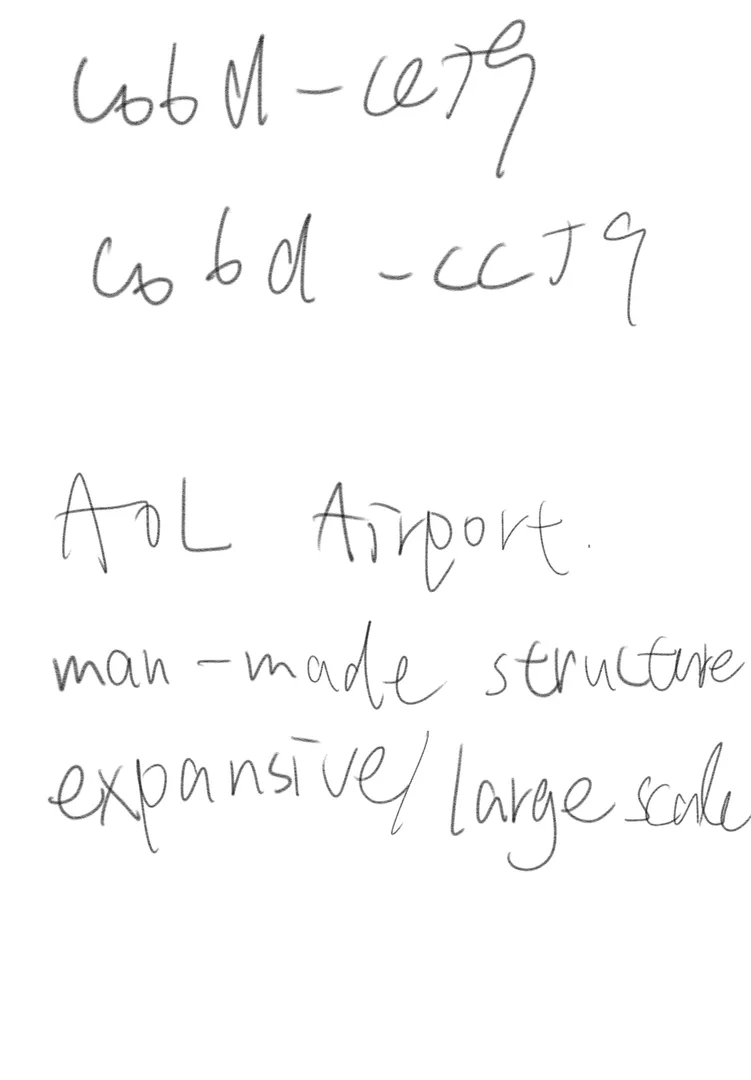 cobd-ccJ9
cobd-ccJ9
AOL Airport.
man-made structure
expansive/large scale